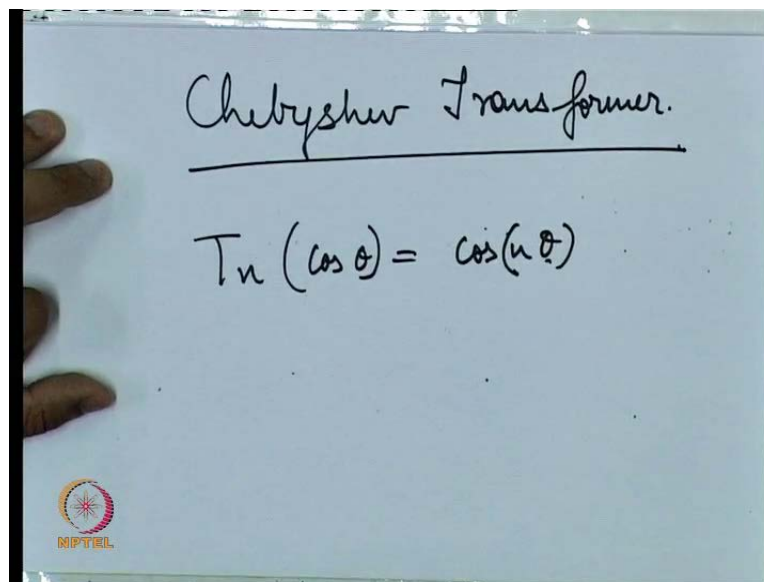 Chebyshev Transformer.
Tn (cos θ) = cos(nθ)
NPTEL